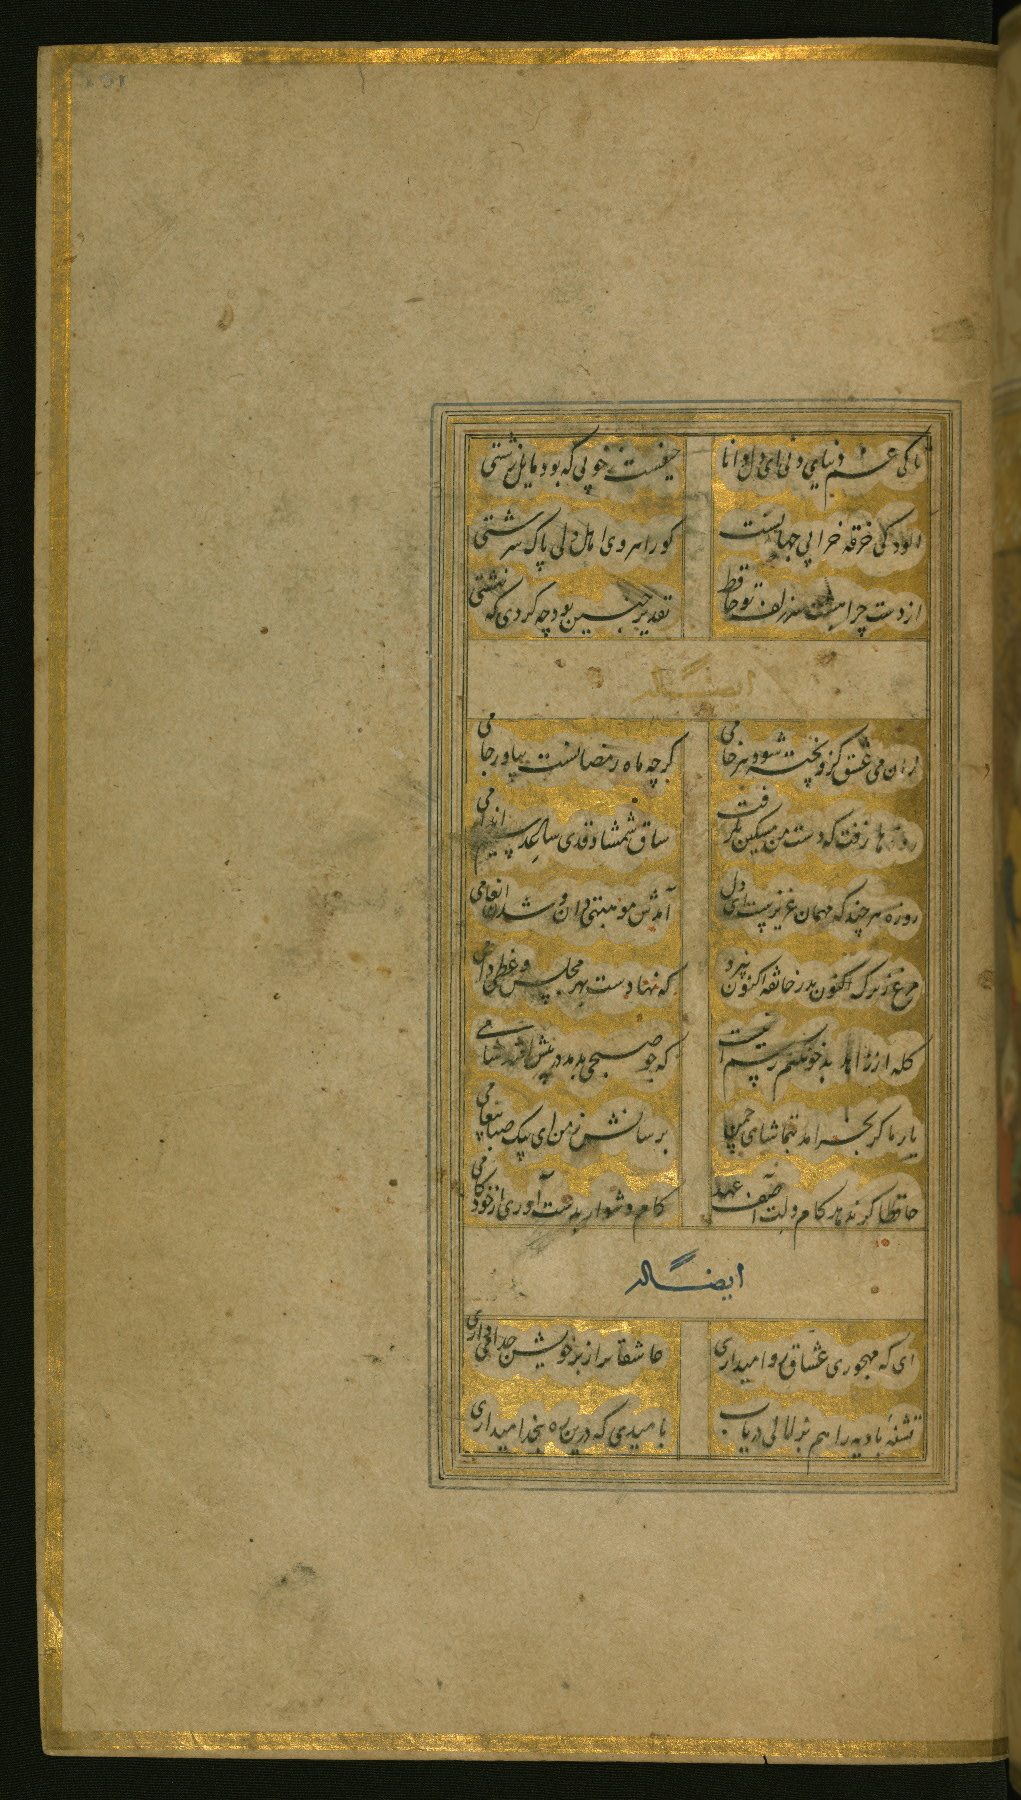 تا کی غم دنیای دنی ای دل دانا
حیفست ز خوبی که بود مایل زشتی
الودکی خرقه خرابی جهانست
کو راهروی اهل دلی پاک سرشتی
از دست چرا هشت سر زلف تو حافظ
تقدیر چنین بود چه کردی که نهشتی
ایضا له
زان می عشق کزو پخته شود هر خامی
کرچه ماه رمضانست بیاور جامی
روزها رفت که دست من مسکین نگرفت
ساق شمشاد قدی ساعد سیم اندامی
روزه هر چند که مهمان عزیزیست ای دل
آمدنش موهبتی دان و شدن انعامی
مرغ زیرک اکنون بدر خانقه اکنون نپرد
که نهادست بهر مجلس وعظی دامی
کله از زاهد بدخو نکنم رسم اینست
که چو صبحی بدمد در پیش افتد شامی
یار ما کر بخرامد بتماشای چمن
برسانش ز من ای پیک صبا پیغامی
حافظا کر ندهد کام دلت اصف عهد
کام دشوار بدست آوری از خودکامی
ایضا له
ای که مهجوری عشاق روا میداری
عاشقانرا ز بر خویش جدا میداری
تشنهٔ بادیه را هم بزلالی دریاب
بامیدی که درین ره بخدا میداری